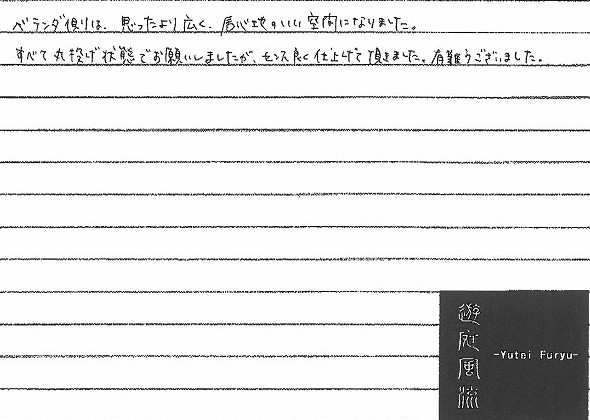 ベランダ側りは、思ったより広く、居心地のいい空間になりました。
すべて丸投げ状態でお願いしましたが、センス良く仕上げて頂きました。有難うございました。
遊庭風流
-Yutei Furyu-